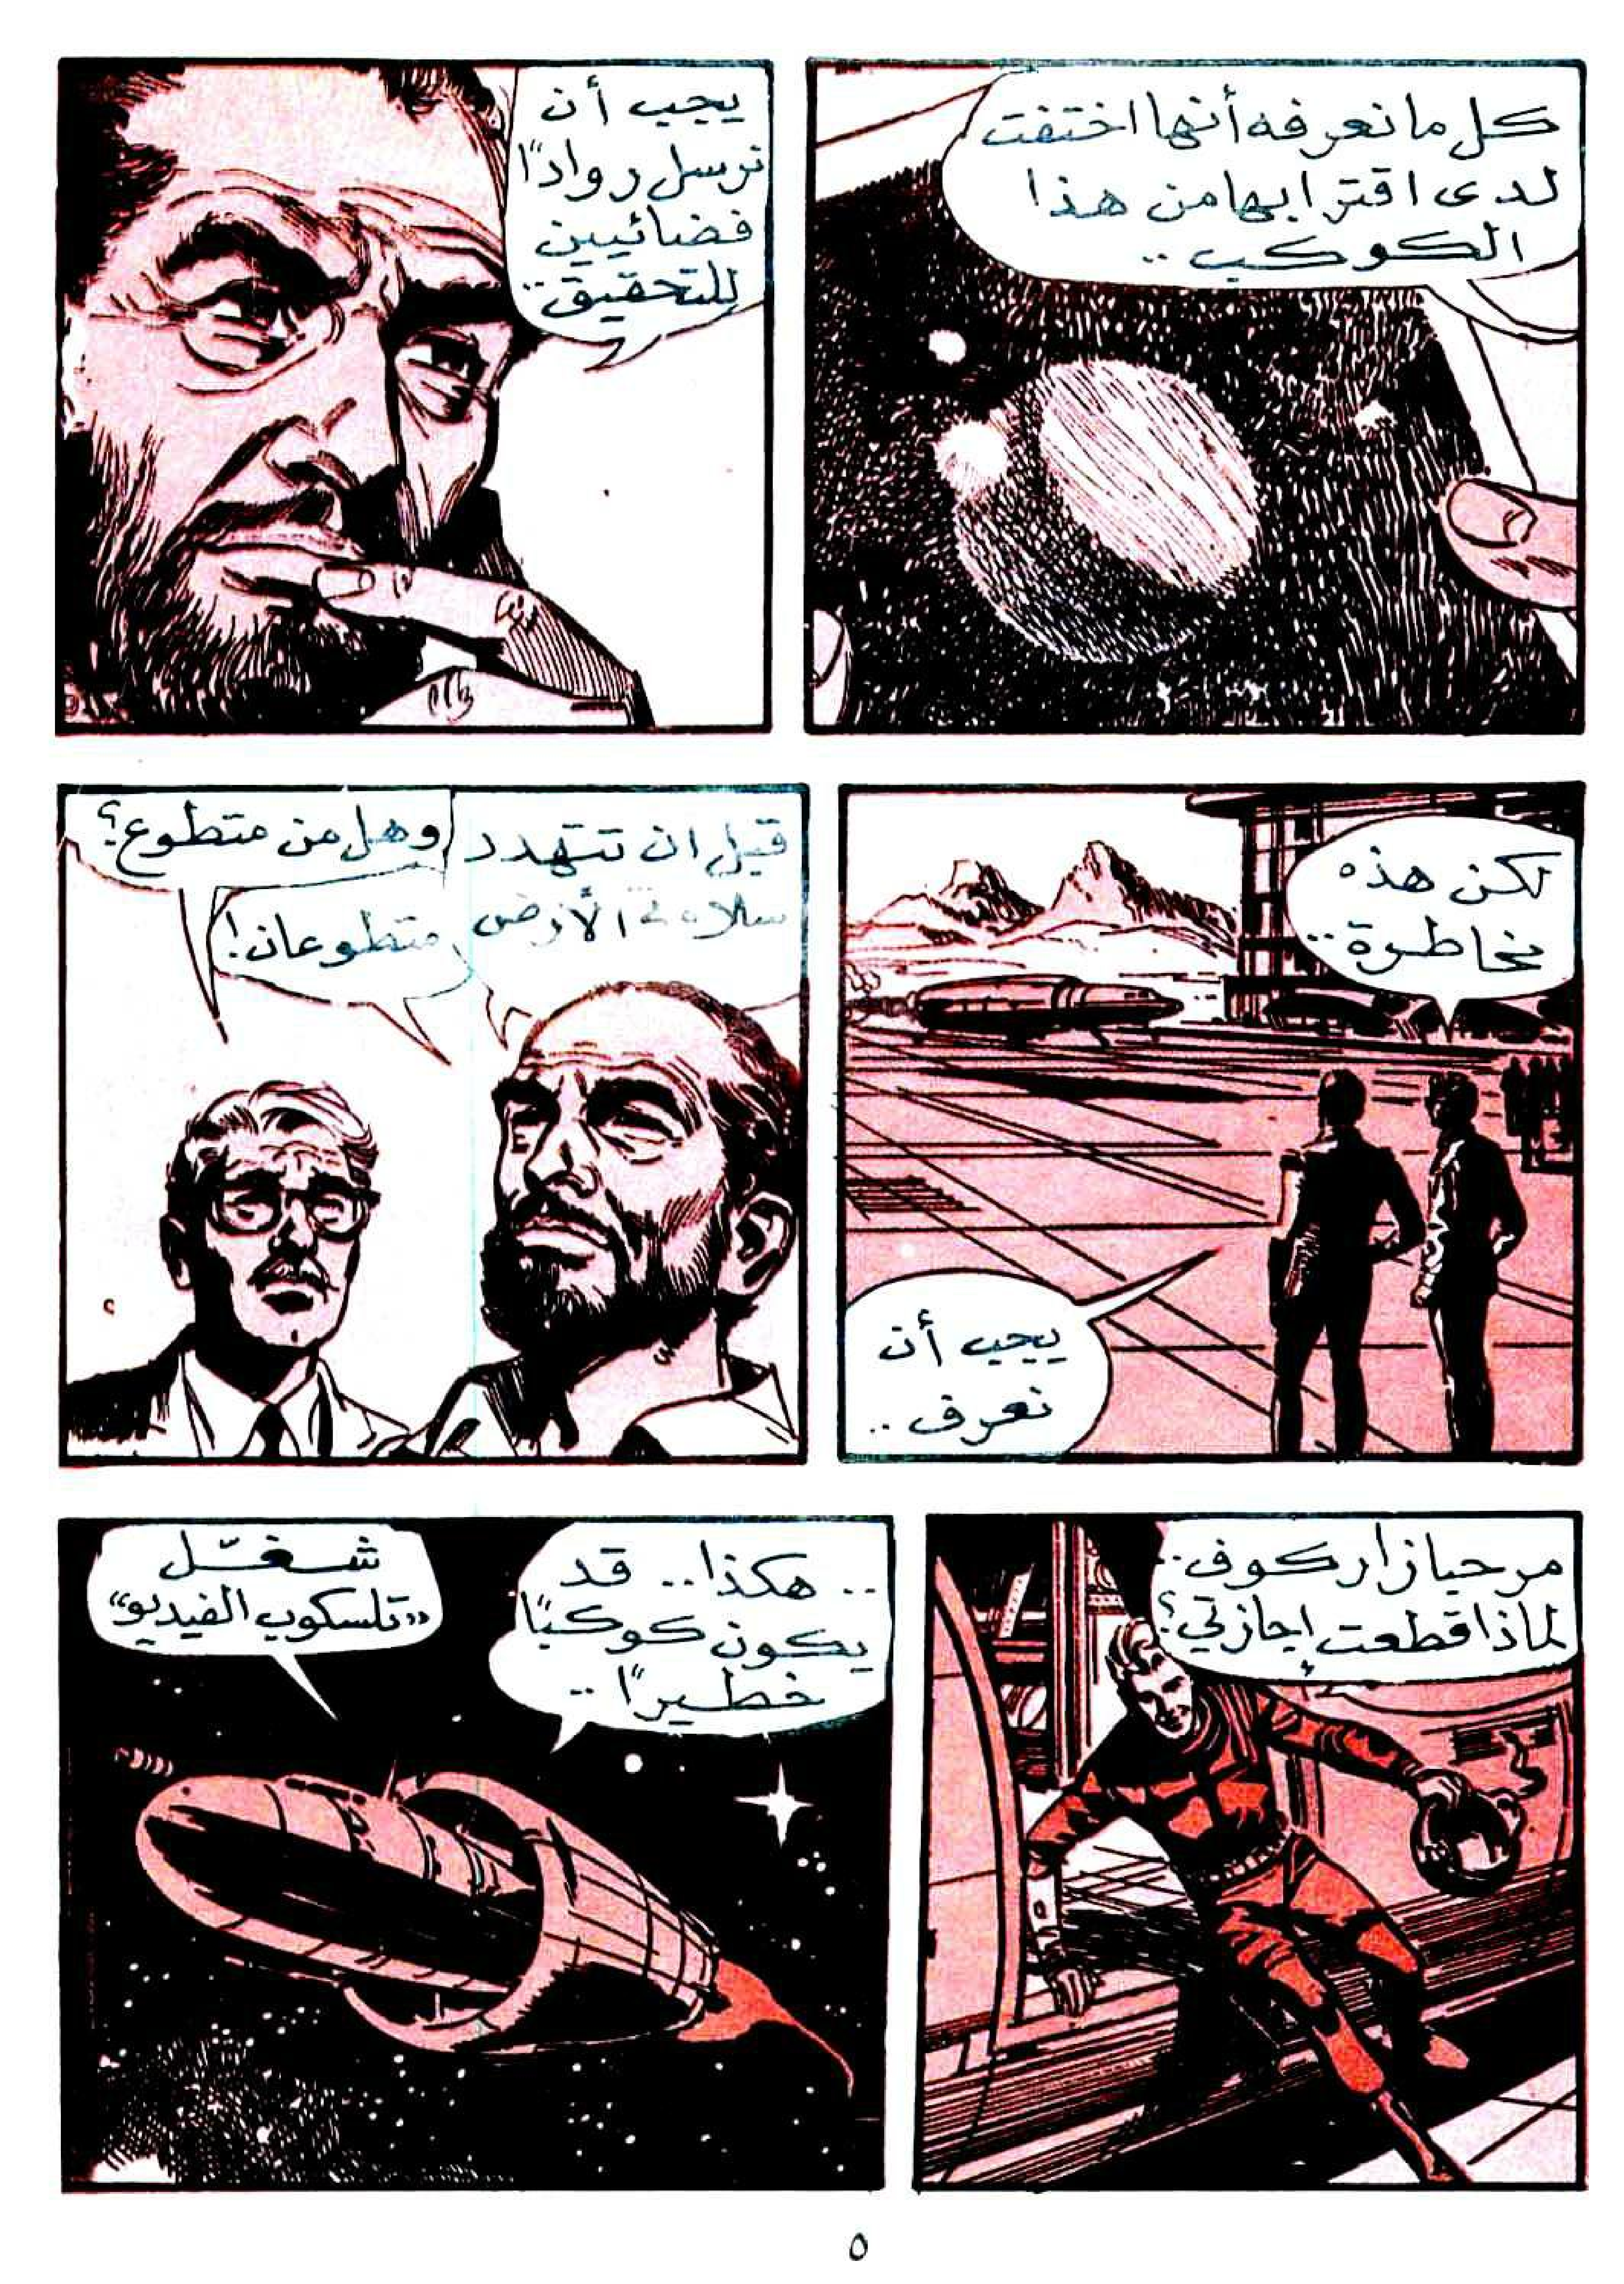 كل ما نعرفه أنها اختفت
لدى اقترابها من هذا
الكوكب ..
يجب أن
نرسل روادًا
فضائيين
للتحقيق ..
لكن هذه
مخاطرة ..
يجب أن
نعرف ..
قبل ان تتهدد
سلامة الأرض
وهل من متطوع؟
متطوعان!
مرحبا زاركوف ..
لماذا قطعت إجازتي؟
.. هكذا .. قد
يكون كوكبًا
خطيرًا ..
شغّل
«تلسكوب الفيديو»
٥